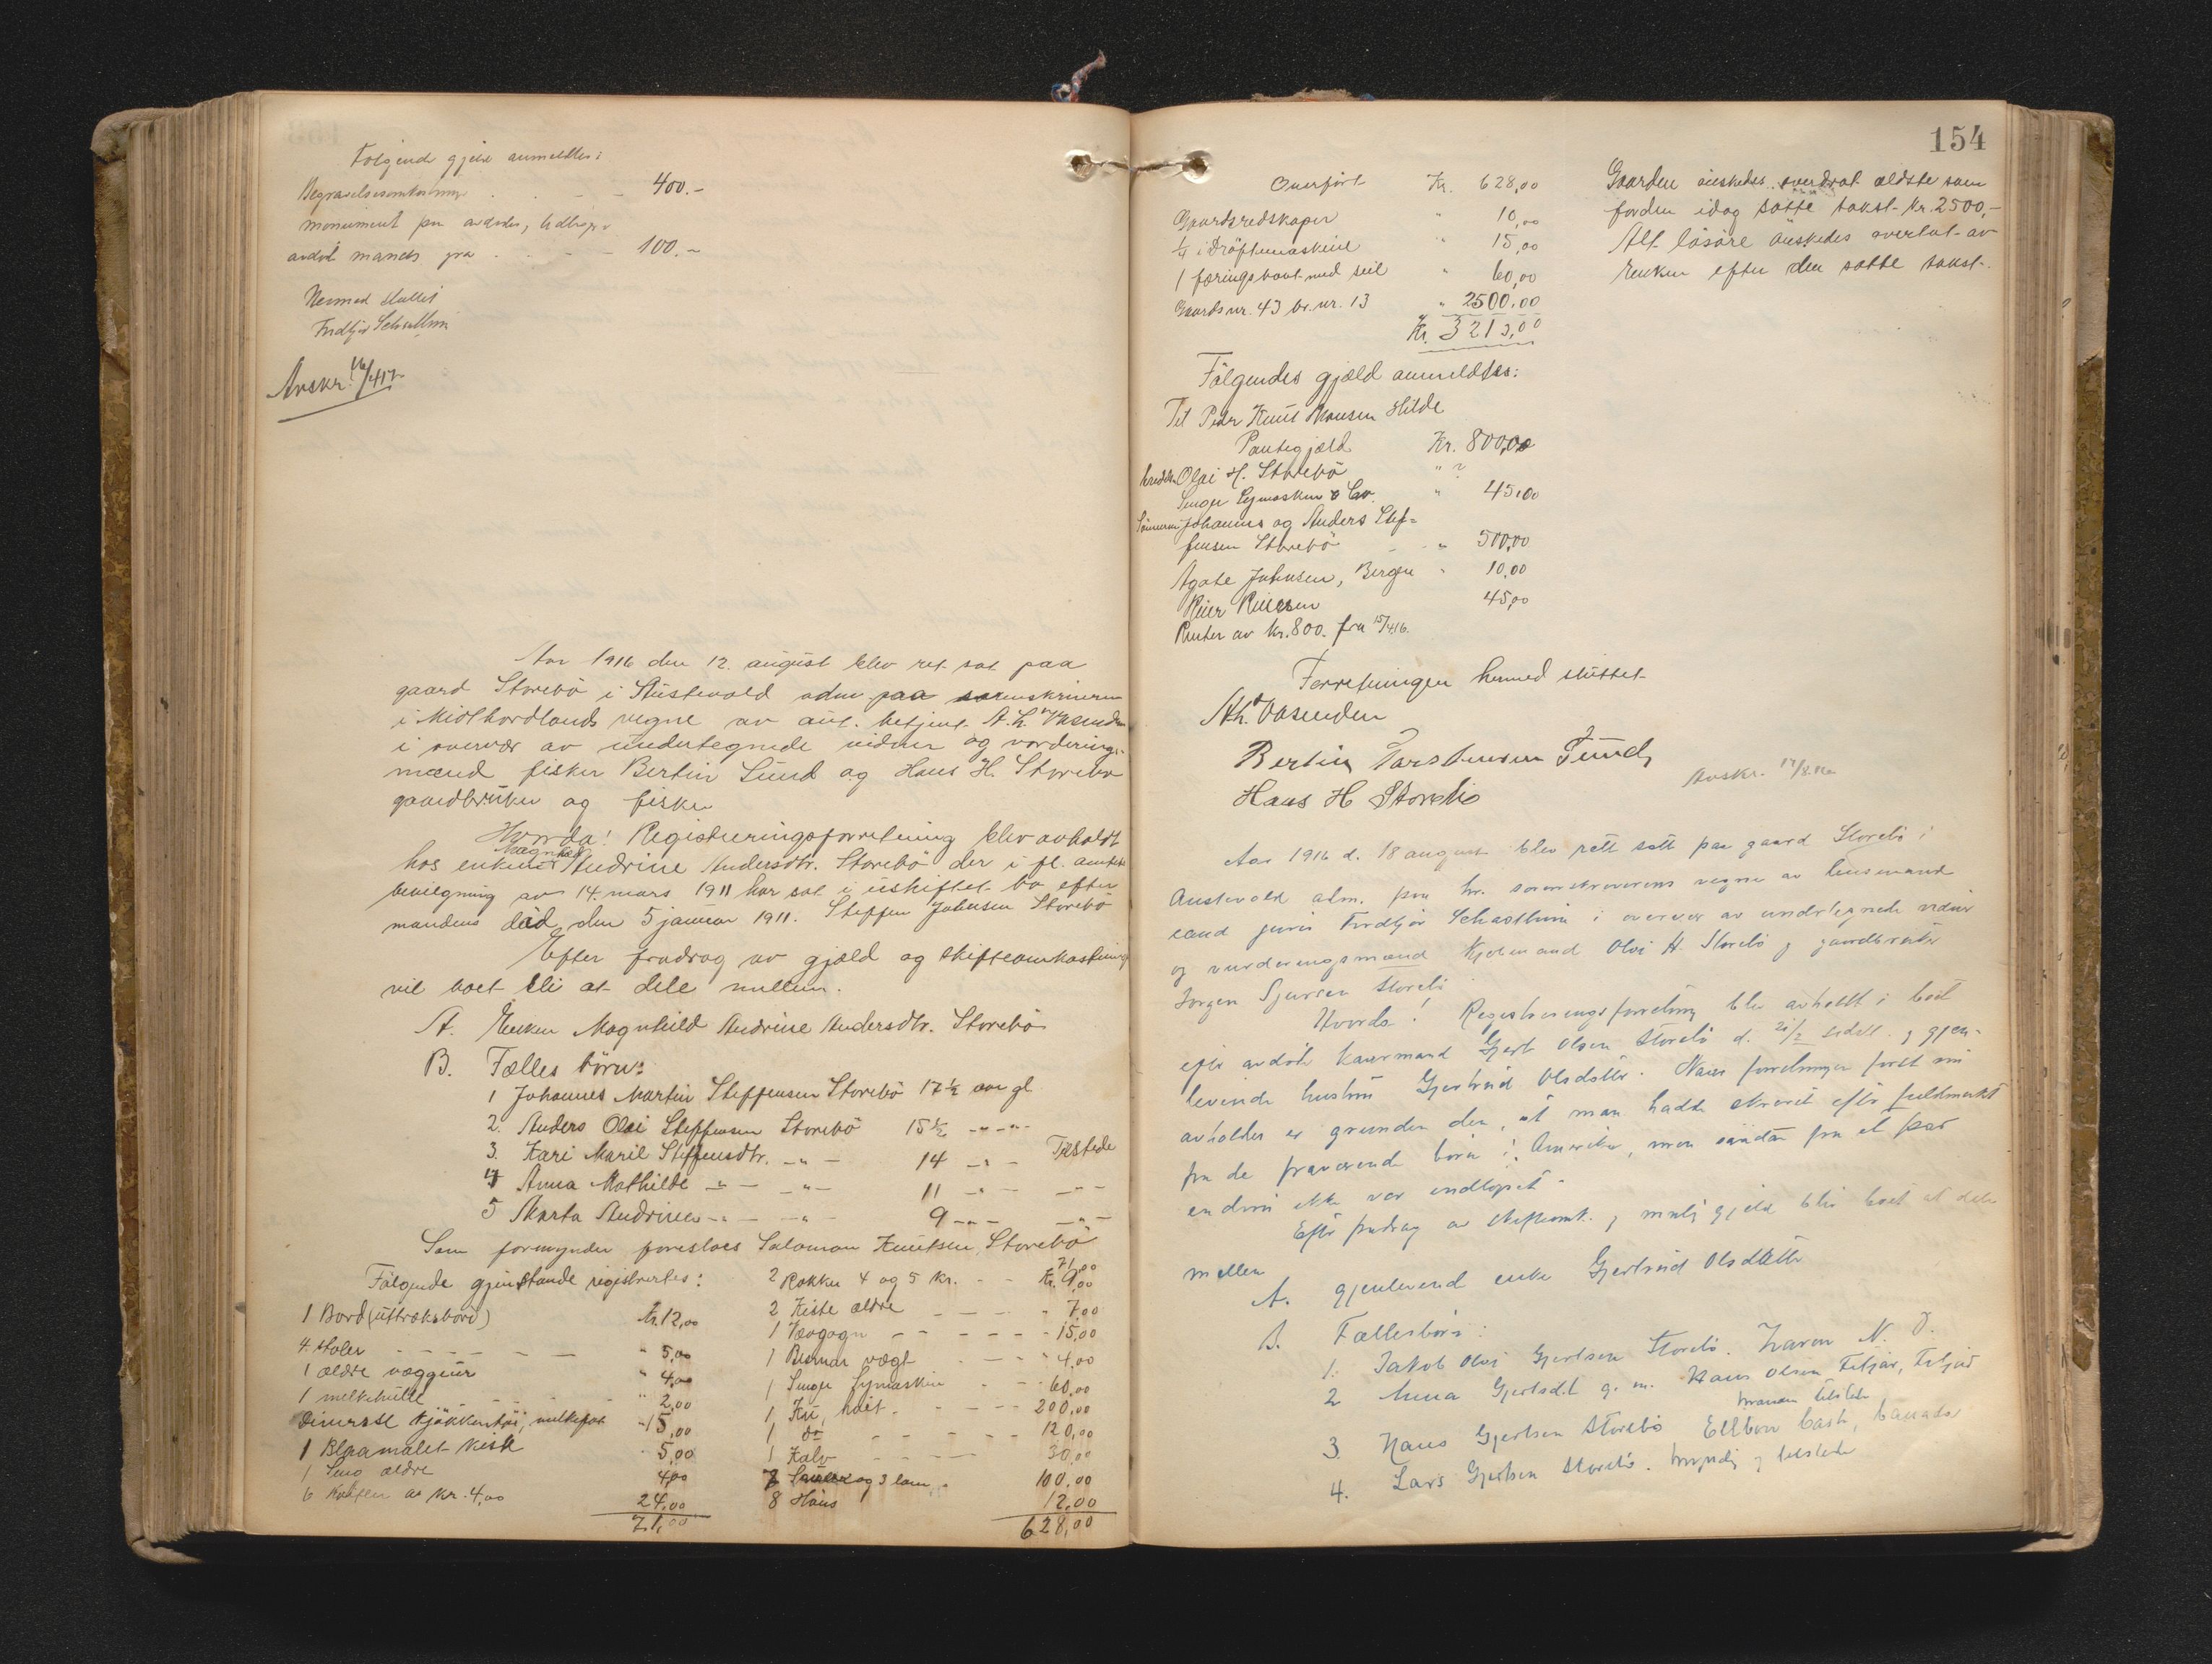 Følgende gjæld anmeldtes:
Begravelsesomkostning . . . 400.-
monument paa avdødes,
avdøde mands grav . . . 100.-
Hermed sluttet
Fridtjov Schatlun
Avskr. 16/4 17
Aar 1916 den 12. august blev ret sat paa
gaard Storebö i Austevold adm. paa sorenskriveren
i Midthordlands vegne av aut. betjent A. L. Aasenden
i overvær av undertegnede vidner og vorderings-
mænd fisker Bertin Sund og Hans H. Storebö
gaardbruker og fisker
Hvorda! Registreringsforretning blev avholdt
hos enken Magnhild Andrine Andersdtr. Storebö der i fl. amtets
bevilgning av 14. mars 1911 har sat i uskiftet bo efter
mandens död, den 5 januar 1911. Steffen Johnsen Storebö
Efter fradrag av gjæld og skifteomkostninger
vil boet bli at dele mellem.
A. Enken Magnhild Andrine Andersdtr. Storebö
B. Fælles börn:
1 Johannes Martin Steffensen Storebö 17½ aar gl
2. Anders Olai Steffensen Storebö 15½ -"-"-
3. Kari Maril Steffensdtr. -"- 14 -"- Tilstede
4 Anna Mathilde -"- -"- 11 -"- -"-
5 Marta Andrine -"- -"- 9 -"- -"-
Som formynder foresloes Salomon Knutsen, Storebö
Fölgende gjenstande registrertes:
1 Bord (uttræksbord) Kr. 12,00
4 stoler " 5,00
1 ældre væggeur " 4,00
1 melkehylle " 2,00
Diverse kjökkentöi, melkefat " 15,00
1 Blaamalet kiste " 5,00
1 Seng ældre 4,00
6 Kopper a Kr. 4,00 24,00
71,00
71,00
2 Rokker 4 og 5 kr. - - Kr. 9,00
2 Kiste ældre - - - " 7,00
1 Vævgogn - - - - - 15,00
1 Bismar vægt - - " 4,00
1 Singer symaskin - - 60,00
1 Ku, hvit - - - - 200,00
1 do - - - - - 120,00
1 Kalv - - - - 30,00
7 Sauer og 3 lam - 100,00
8 Höns 12,00
628,00
154
Overfört Kr. 628,00
Gaardsredskaper " 10,00
¼ i Dröftemaskine " 15,00
1 færingsbaat med seil " 60,00
Gaards nr. 43 br. nr. 13 " 2500,00
Kr. 3213,00
Fölgendes gjæld anmeldtes:
Til Peder Knut Monsen Hilde
Pantegjæld Kr. 800,00
Olai H. Storebö " ?
Singer Symaskin & Co. " 45,00
Sönnerne Johannes og Anders Stef-
fensen Storebö - " 500,00
Agate Johnsen, Bergen " 10,00
Reier Reiersen 45,00
Renter av kr. 800. fra 15/4 16.
Forretningen hermed sluttet
A.L. Aasenden
Bertin Torstensen Sund
Hans H Storebö
Avskr. 17/8 16
Gaarden önskedes overdrat ældste sön
for den idag satte takst kr. 2500,-
Alt lösöre önskedes overlat av
Enken efter den satte takst.
Aar 1916 d. 18 august blev rett satt paa gaard Storebö i
Austevold adm. paa hr. sorenskriverens vegne av lensmand
cand juris Fridtjov Schatlun i overvær av undertegnede vidner
og vurderingsmænd Kjöbmand Olai H. Storebö og gaardbruker
Jørgen Sjursen Storebö
Hvorda! Registreringsforretning blev avholdt i boet
efter avdöde kaarmand Gjert Olsen Storebö d. 21/2 sidstl. og gjen-
levende hustru Gjertrud Olsdatter. Naar forretningen först nu
avholdes er grunden den, at man hadde skrevet efter fuldmakt
fra de fraværende börn i Amerika, men svaret fra et par
endnu ikke var indlöpet.
Efter fradrag av skifteomk. og mulig gjæld blir boet at dele
mellem
A. gjenlevende enke Gjertrud Olsdatter
B. Fællesbörn:
1. Jakob Olai Gjertsen Storebö.
2 Anna Gjertsdt. g. m. Hans Olsen Fitjar, Fitjar
manden tilstede
3. Hans Gjertsen Storebö Canada
4. Lars Gjertsen Storebö. myndig og tilstede